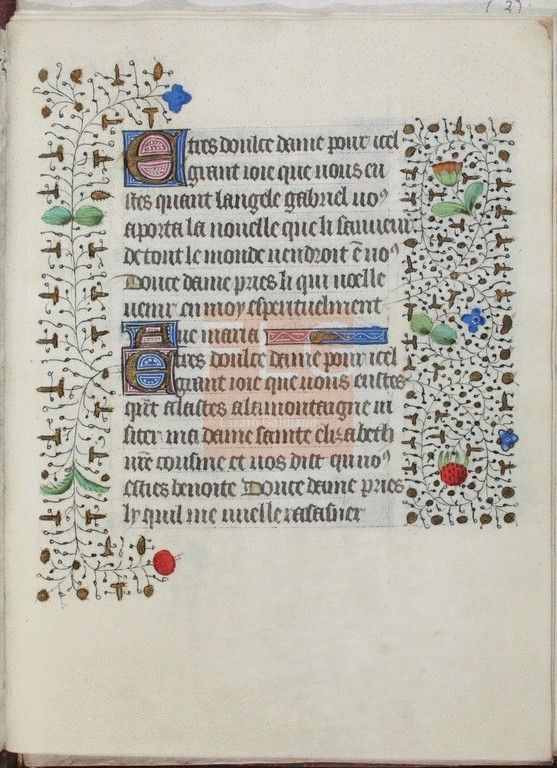 ( 2 )
E tres doulce dame pour icel
grant ioie que uous eu
stes quant langele gabriel uoꝰ
aporta la nouelle que li sauueur
de tout le monde uendroit ē uoꝰ
Douce dame pries li qui uoelle
uenir en moy espirituelment
Aue maria
E tres doulce dame pour icel
grant ioie que uous eustes
qñt alastes a la montaigne ui
siter ma dame sainte elisabeth
ure cousine et uos dist qui uoꝰ
esties benoite Douce dame pries
ly quil me uuelle rasasier
Lázaro Galdiano